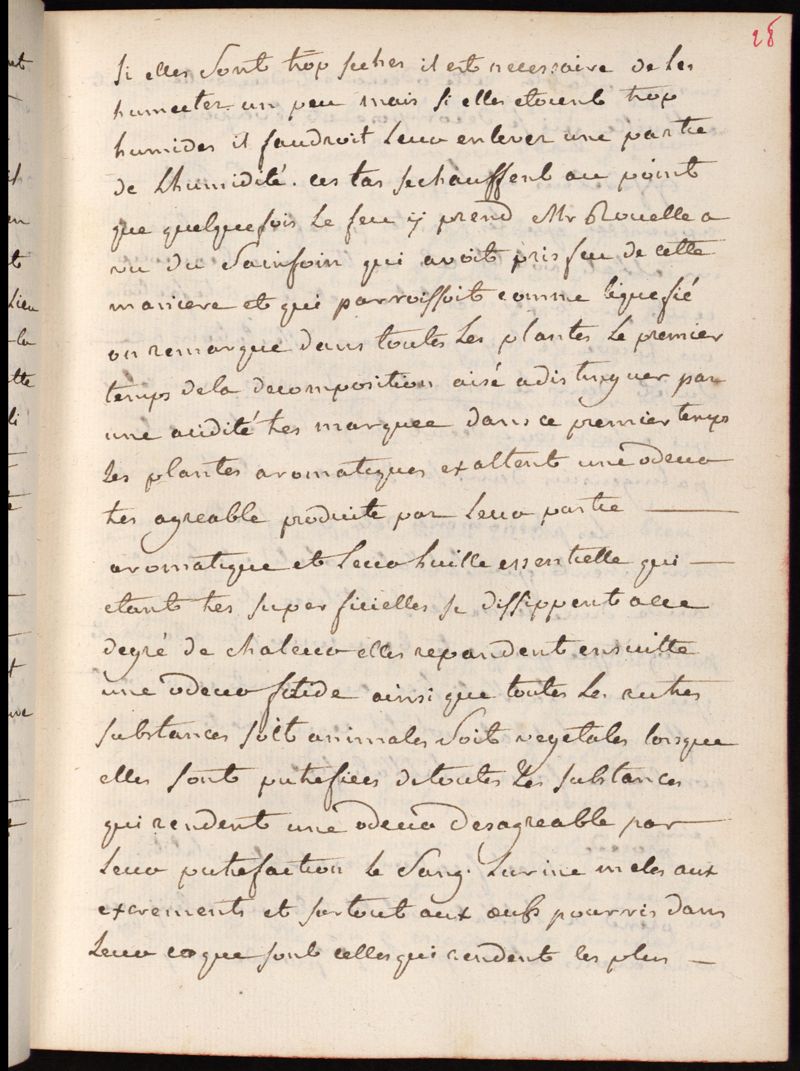 28
si elles sont trop seches il est necessaire de les
humecter un peu mais si elles etoient trop
humides il faudroit leur enlever une partie
de Lhumidité. ces tas sechauffent au point
que quelquefois le feu y prend Mr Rouelle a
vu du Sainfoin qui avoit pris feu de cette
maniere et qui parroissoit comme liquefié
on remarque dans toutes les plantes le premier
temps de la decomposition aisé a distinguer par
une acidité tres marquee dans ce premier temps
les plantes aromatiques exaltent une odeur
tres agreable produite par leur partie
aromatique et leur huille essentielle qui
etant tres superficielles se dissippent a ce
degré de chaleur elles repandent ensuitte
une odeur fetide ainsi que toutes les autres
substances soit animales soit vegetales lorsque
elles sont putrefiees de toutes les substances
qui rendent une odeur desagreable par
leur putrefaction le sang. Lurine meles aux
excrements et surtout aux œufs pourris dans
leur coque sont celles qui rendent les plus